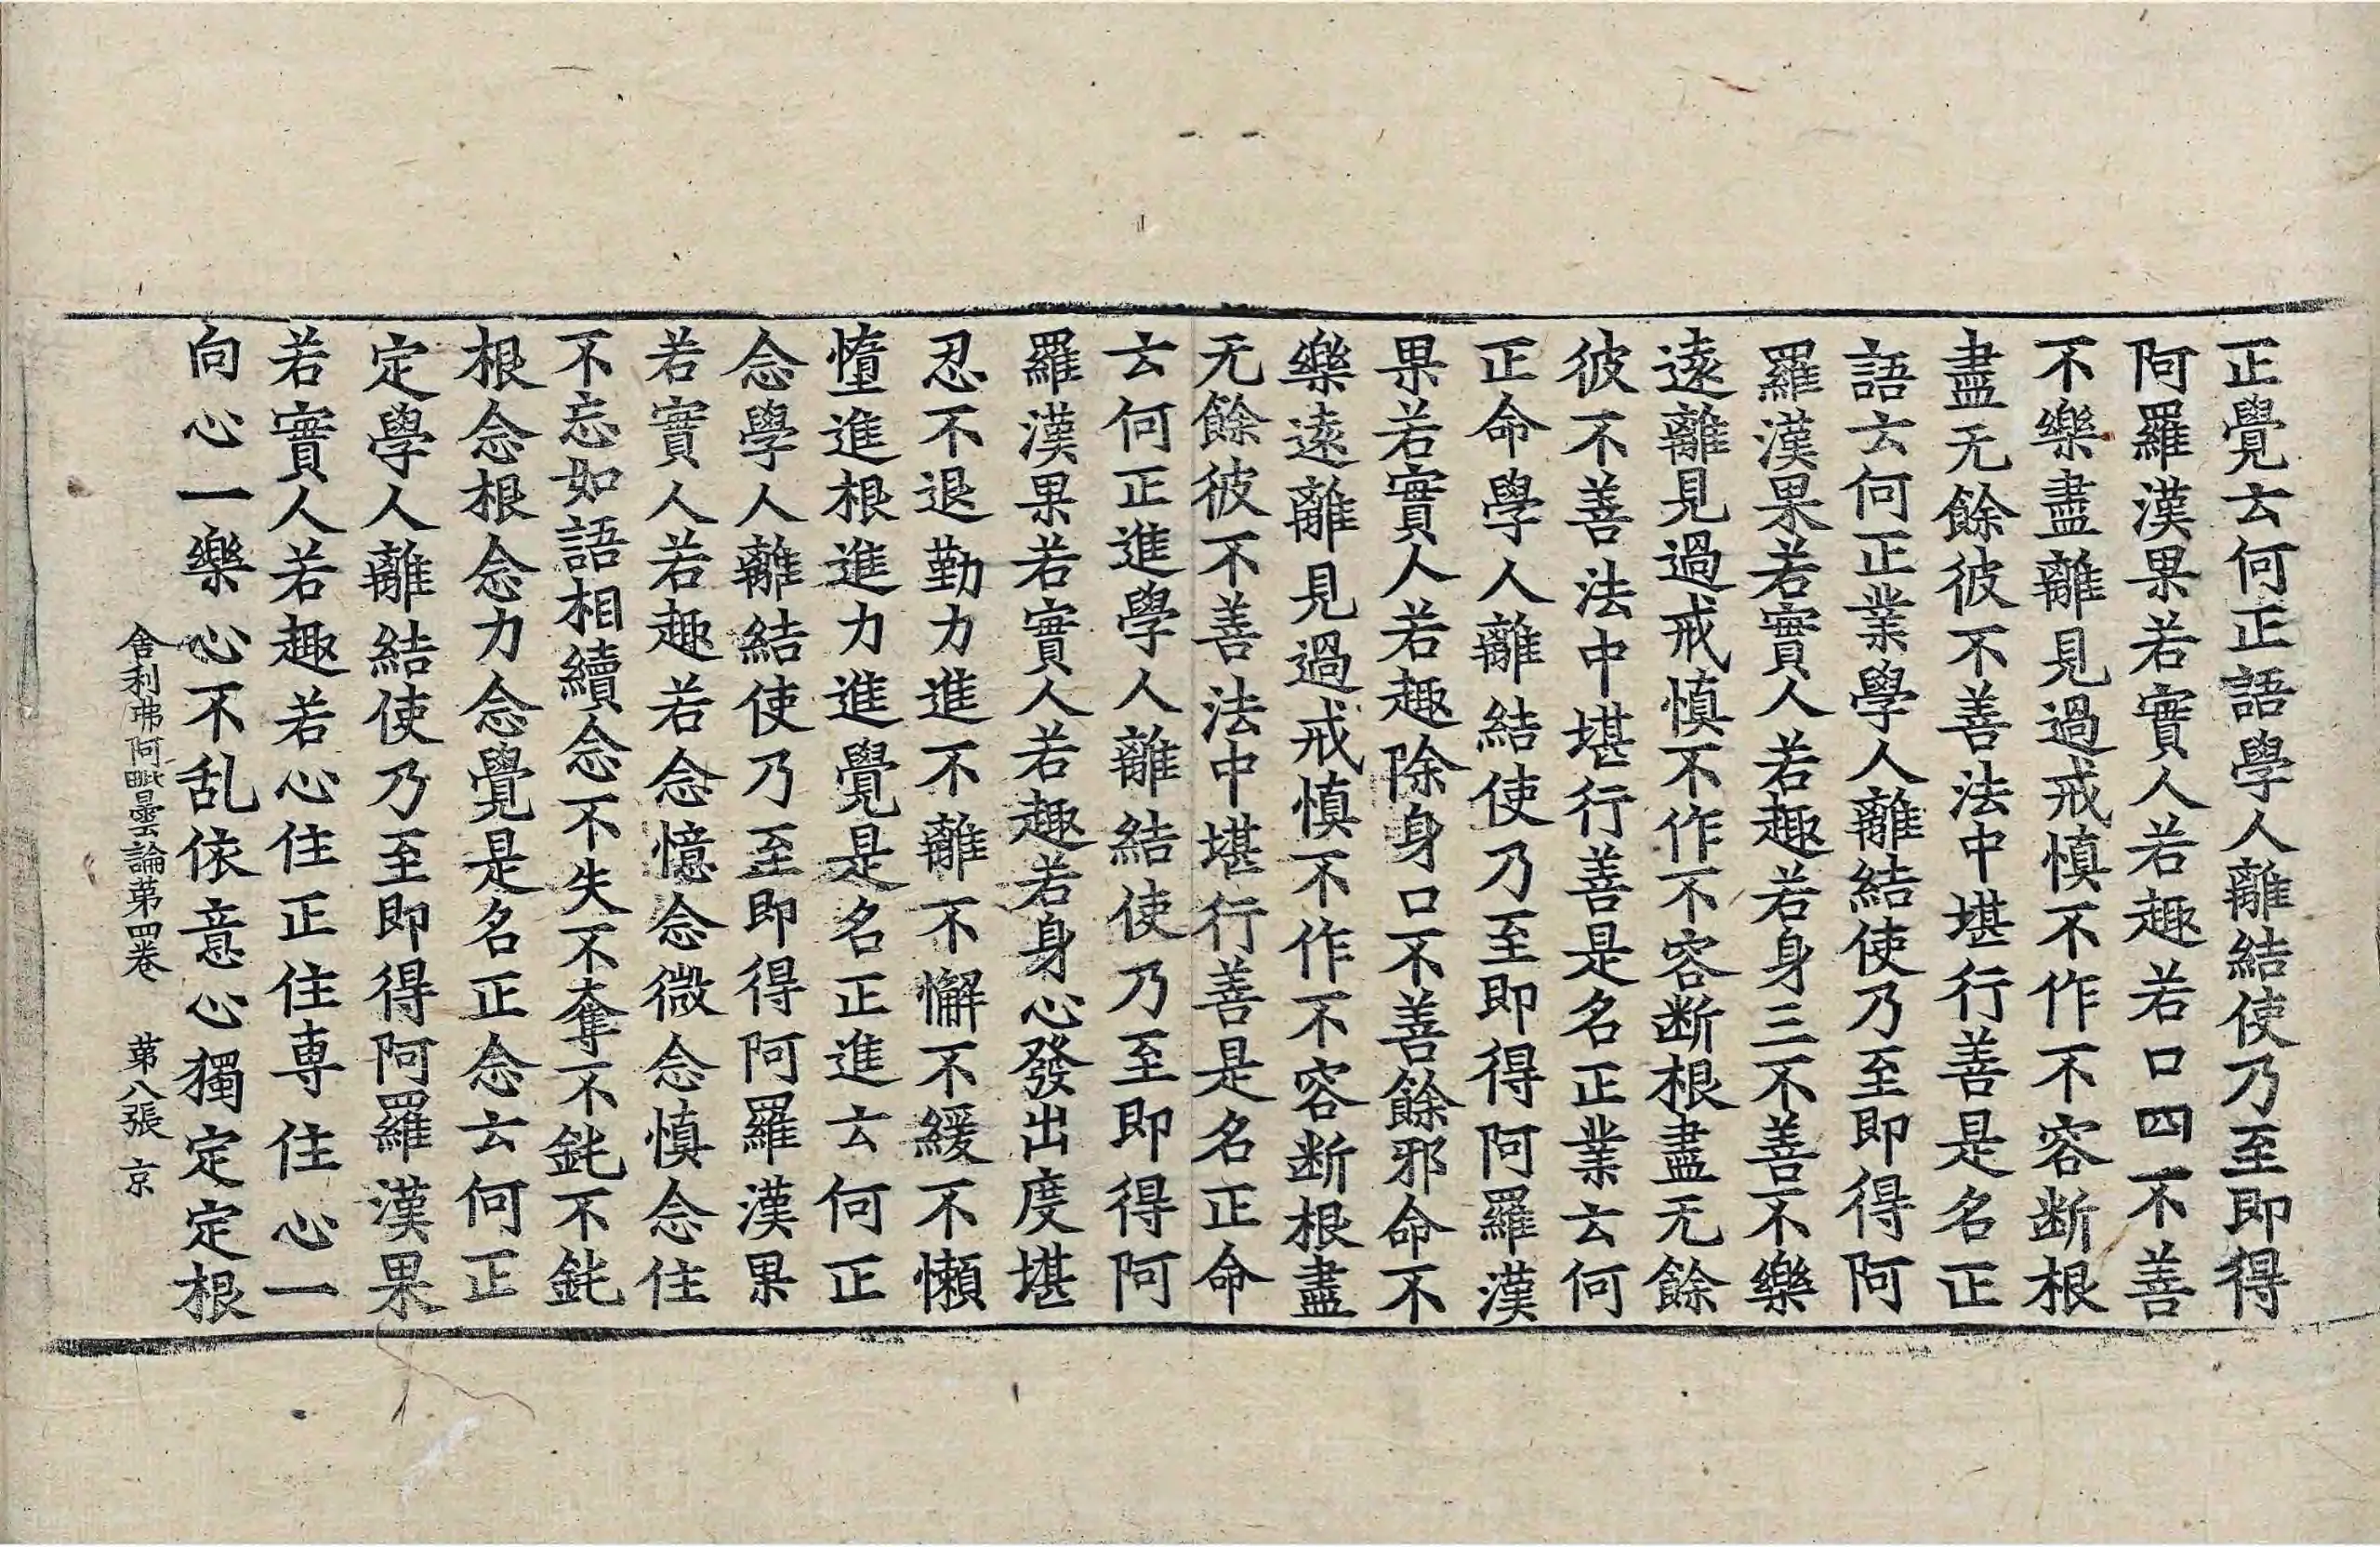 正覺云何正語學人離結使乃至即得
阿羅漢果若實人若趣若口四不善
不樂盡離見過戒慎不作不容断根
盡无餘彼不善法中堪行善是名正
語云何正業學人離結使乃至即得阿
羅漢果若實人若趣若身三不善不樂
遠離見過戒慎不作不容断根盡无餘
彼不善法中堪行善是名正業云何
正命學人離結使乃至即得阿羅漢
果若實人若趣除身口不善餘邪命不
樂遠離見過戒慎不作不容断根盡
无餘彼不善法中堪行善是名正命
云何正進學人離結使乃至即得阿
羅漢果若實人若趣若身心發出度堪
忍不退勤力進不離不懈不緩不懶
憧進根進力進覺是名正進云何正
念學人離結使乃至即得阿羅漢果
若實人若趣若念憶念微念慎念住
不忘如語相續念不失不奪不鈍不鈍
根念根念力念覺是名正念云何正
定學人離結使乃至即得阿羅漢果
若實人若趣若心住正住専住心一
向心一樂心不乱依意心獨定定根
舍利弗阿毗曇論苐四卷 苐八張 京